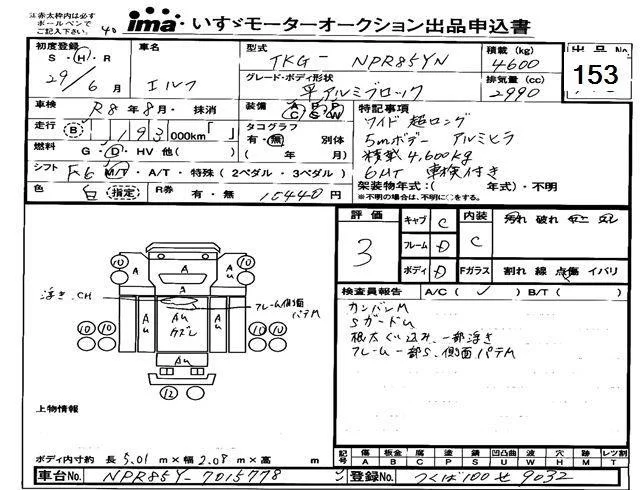 江赤太枠内は必ず
ボールペンで
ご記入下さい。
40
ima いすゞモーターオークション出品申込書
初度登録
S・H・R
29/6月
車名
エルフ
型式
TKG- NPR85YN
積載 (kg)
4600
出品No.
153
グレード・ボディ形状
平アルミブロック
排気量 (cc)
2990
車検 R8年8月・抹消
装備 A C P S P W
特記事項
ワイド 超ロング
5mボデー アルミヒラ
積載 4,600kg
6MT 車検付き
走行 B 193 000km
タコグラフ
有・無 別体
( 年 月)
燃料 G・D・HV 他( )
シフト F6 M/T・A/T・特殊 (2ペダル・3ペダル)
架装物年式:( 年式)・不明
※不明の場合は、不明に○をする。
色 白 指定 R券 有・無 10440円
評価
3
キャブ C
フレーム D
ボディ D
内装 C
Fガラス
汚れ 破れ
割れ 線 点傷 イバリ
検査員報告 A/C( ✓ ) B/T( )
カンバンM
SガードU
根太くい込み、一部浮き
フレーム一部S、側面パテM
浮き、CH
フレーム側面
パテM
10 10 A A A Au 10 10
A
10 10 Au Au Au 10 10
Au
12
上物情報
ボディ内寸約 長 5.01 m×幅 2.08 m×高 m
記号 傷 板金 腐 塗 錆 凹凸曲 波 穴 跡 レツ割
A B C P S U W H M T
車台No. NPR85Y-7015778
登録No. つくば100せ9032